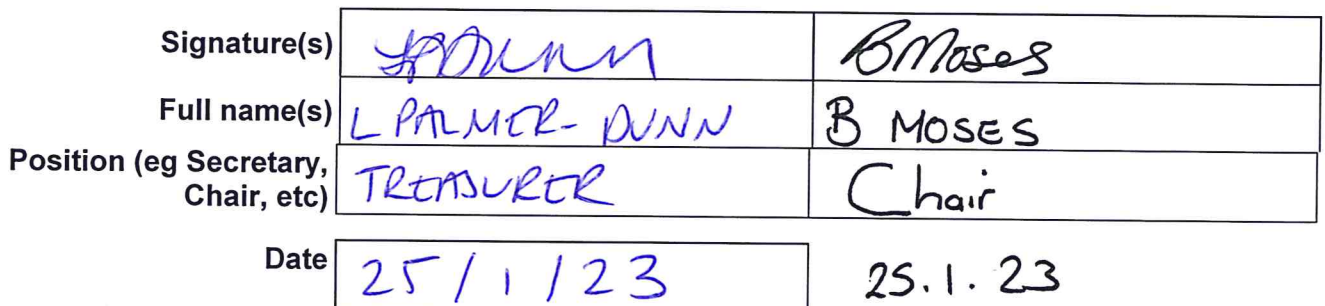 Signature(s) BMoses
Full name(s) L PALMER-DUNN B MOSES
Position (eg Secretary,
Chair, etc) TREASURER Chair
Date 25/1/23 25.1.23